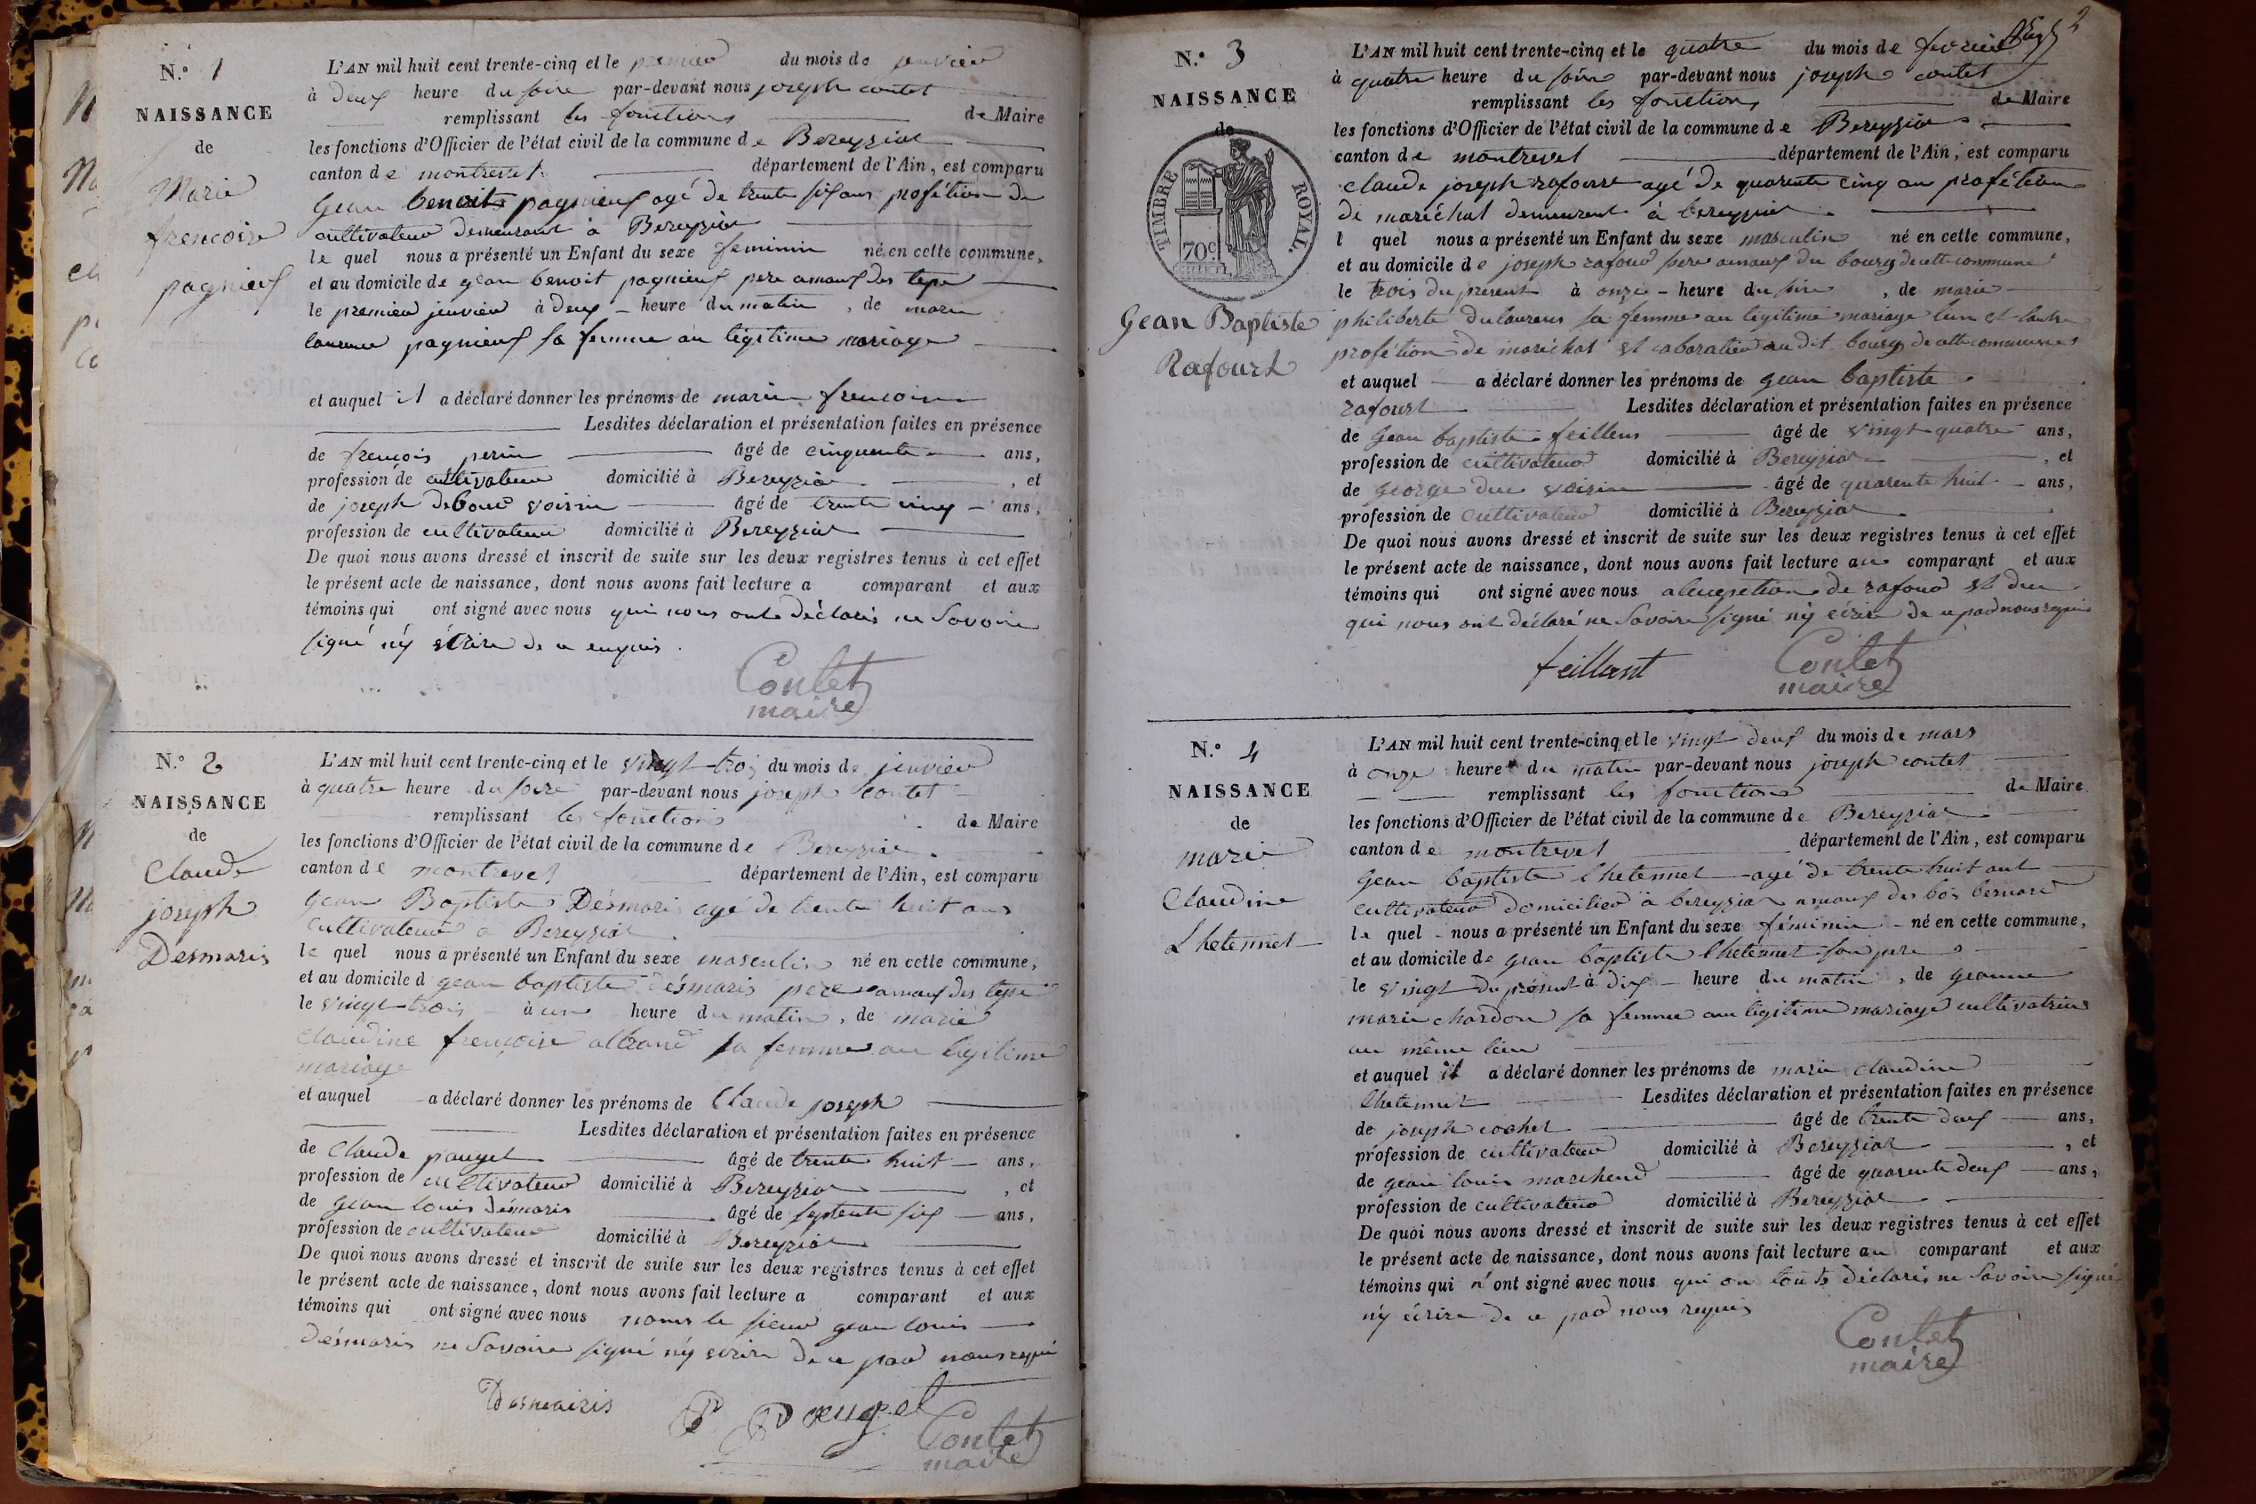 N.º 1
NAISSANCE
de
Marie
frencoise
pagnieux
L'AN mil huit cent trente-cinq et le premier du mois de jenvier
à deux heure du soire par-devant nous joseph contet
remplissant les fonctions de Maire
les fonctions d'Officier de l'état civil de la commune de Bereyziat
canton de montrevel département de l'Ain, est comparu
gean benoit pagnieux agé de trente six ans profétion de
cultivateur demeurant à Bereyziat
le quel nous a présenté un Enfant du sexe feminin né en cette commune,
et au domicile de gean benoit pagnieux pere amaux des tepe
le premier jenvier à deux heure du matin, de marie
laurence pagnieux sa femme au légitime mariage
et auquel il a déclaré donner les prénoms de marie frencoise
Lesdites déclaration et présentation faites en présence
de frencois perin âgé de cinquente ans,
profession de cultivateur domicilié à Bereyziat, et
de joseph debour voisin âgé de trente cinq ans,
profession de cultivateur domicilié à Bereyziat
De quoi nous avons dressé et inscrit de suite sur les deux registres tenus à cet effet
le présent acte de naissance, dont nous avons fait lecture a comparant et aux
témoins qui ont signé avec nous qui nous onts déclarés ne Savoire
signé n'y écrire de ce enquis.
Contet
maire
N.º 2
NAISSANCE
de
Claude
joseph
Desmaris
L'AN mil huit cent trente-cinq et le vingt-trois du mois de jenvier
à quatre heure du soire par-devant nous joseph contet
remplissant les fonctions de Maire
les fonctions d'Officier de l'état civil de la commune de Bereyziat
canton de montrevel département de l'Ain, est comparu
gean Baptiste Désmaris agé de trente huit ans
cultivateur a Bereyziat
le quel nous a présenté un Enfant du sexe masculin né en cette commune,
et au domicile d gean baptiste désmaris pere amaux des tepe
le vingt-trois à un heure du matin, de marie
claudine frençoise allrand sa femme au légitime
mariage
et auquel a déclaré donner les prénoms de Claude joseph
Lesdites déclaration et présentation faites en présence
de Claude pauget âgé de trente huit ans,
profession de cultivateur domicilié à Bereyziat, et
de gean louis Désmaris âgé de septente six ans,
profession de cultivateur domicilié à Bereyziat
De quoi nous avons dressé et inscrit de suite sur les deux registres tenus à cet effet
le présent acte de naissance, dont nous avons fait lecture a comparant et aux
témoins qui ont signé avec nous le sieur gean louis
Désmaris ne Savoire signé n'y écrire de ce par nous requi
Desmairis
Pauget
Contet
maire
2
N.º 3
NAISSANCE
de
TIMBRE ROYAL.
70c
Gean Baptiste
Rafourt
L'AN mil huit cent trente-cinq et le quatre du mois de fevrier
à quatre heure du soire par-devant nous joseph contet
remplissant les fonctions de Maire
les fonctions d'Officier de l'état civil de la commune de Bereyziat
canton de montrevel département de l'Ain, est comparu
claude joseph rafourt agé de quarente cinq an profétion
de maréchal demeurent à bereyziat
l quel nous a présenté un Enfant du sexe masculin né en cette commune,
et au domicile de joseph rafour pere amaux du bourg de cette commune
le trois du present à onze heure du soire, de marie
philiberte dulaurens sa femme au légitime mariage l'un et l'autre
profétion de maréchal et au dit bourg de cette commune
et auquel a déclaré donner les prénoms de gean baptiste
rafourt Lesdites déclaration et présentation faites en présence
de gean baptiste feillens âgé de vingt quatre ans,
profession de cultivateur domicilié à Bereyziat, et
de george duc voisin âgé de quarente huit ans,
profession de cultivateur domicilié à Bereyziat
De quoi nous avons dressé et inscrit de suite sur les deux registres tenus à cet effet
le présent acte de naissance, dont nous avons fait lecture au comparant et aux
témoins qui ont signé avec nous de rafour et duc
qui nous ont déclaré ne Savoire signé n'y écrire de ce par nous requis
feillant
Contet
maire
N.º 4
NAISSANCE
de
marie
Claudine
Lhetennet
L'AN mil huit cent trente-cinq et le vingt deux du mois de mars
à onze heure du matin par-devant nous joseph contet
remplissant les fonctions de Maire
les fonctions d'Officier de l'état civil de la commune de Bereyziat
canton de montrevel département de l'Ain, est comparu
gean baptiste lhetennet agé de trente huit ant
cultivateur domicilier à bereyziat amaux des bois bernard
le quel nous a présenté un Enfant du sexe féminin né en cette commune,
et au domicile de gean baptiste lhetennet son pere
le vingt du présent à dix heure du matin, de geanne
marie chardon sa femme au légitime mariage cultivatrice
au même lieu
et auquel il a déclaré donner les prénoms de marie claudine
lhetennet Lesdites déclaration et présentation faites en présence
de joseph cochet âgé de trente deux ans,
profession de cultivateur domicilié à Bereyziat, et
de gean louis marchend âgé de quarente deux ans,
profession de cultivateur domicilié à Bereyziat
De quoi nous avons dressé et inscrit de suite sur les deux registres tenus à cet effet
le présent acte de naissance, dont nous avons fait lecture au comparant et aux
témoins qui n'ont signé avec nous qui on touts déclarés ne Savoire signé
n'y écrire de ce par nous requis
Contet
maire